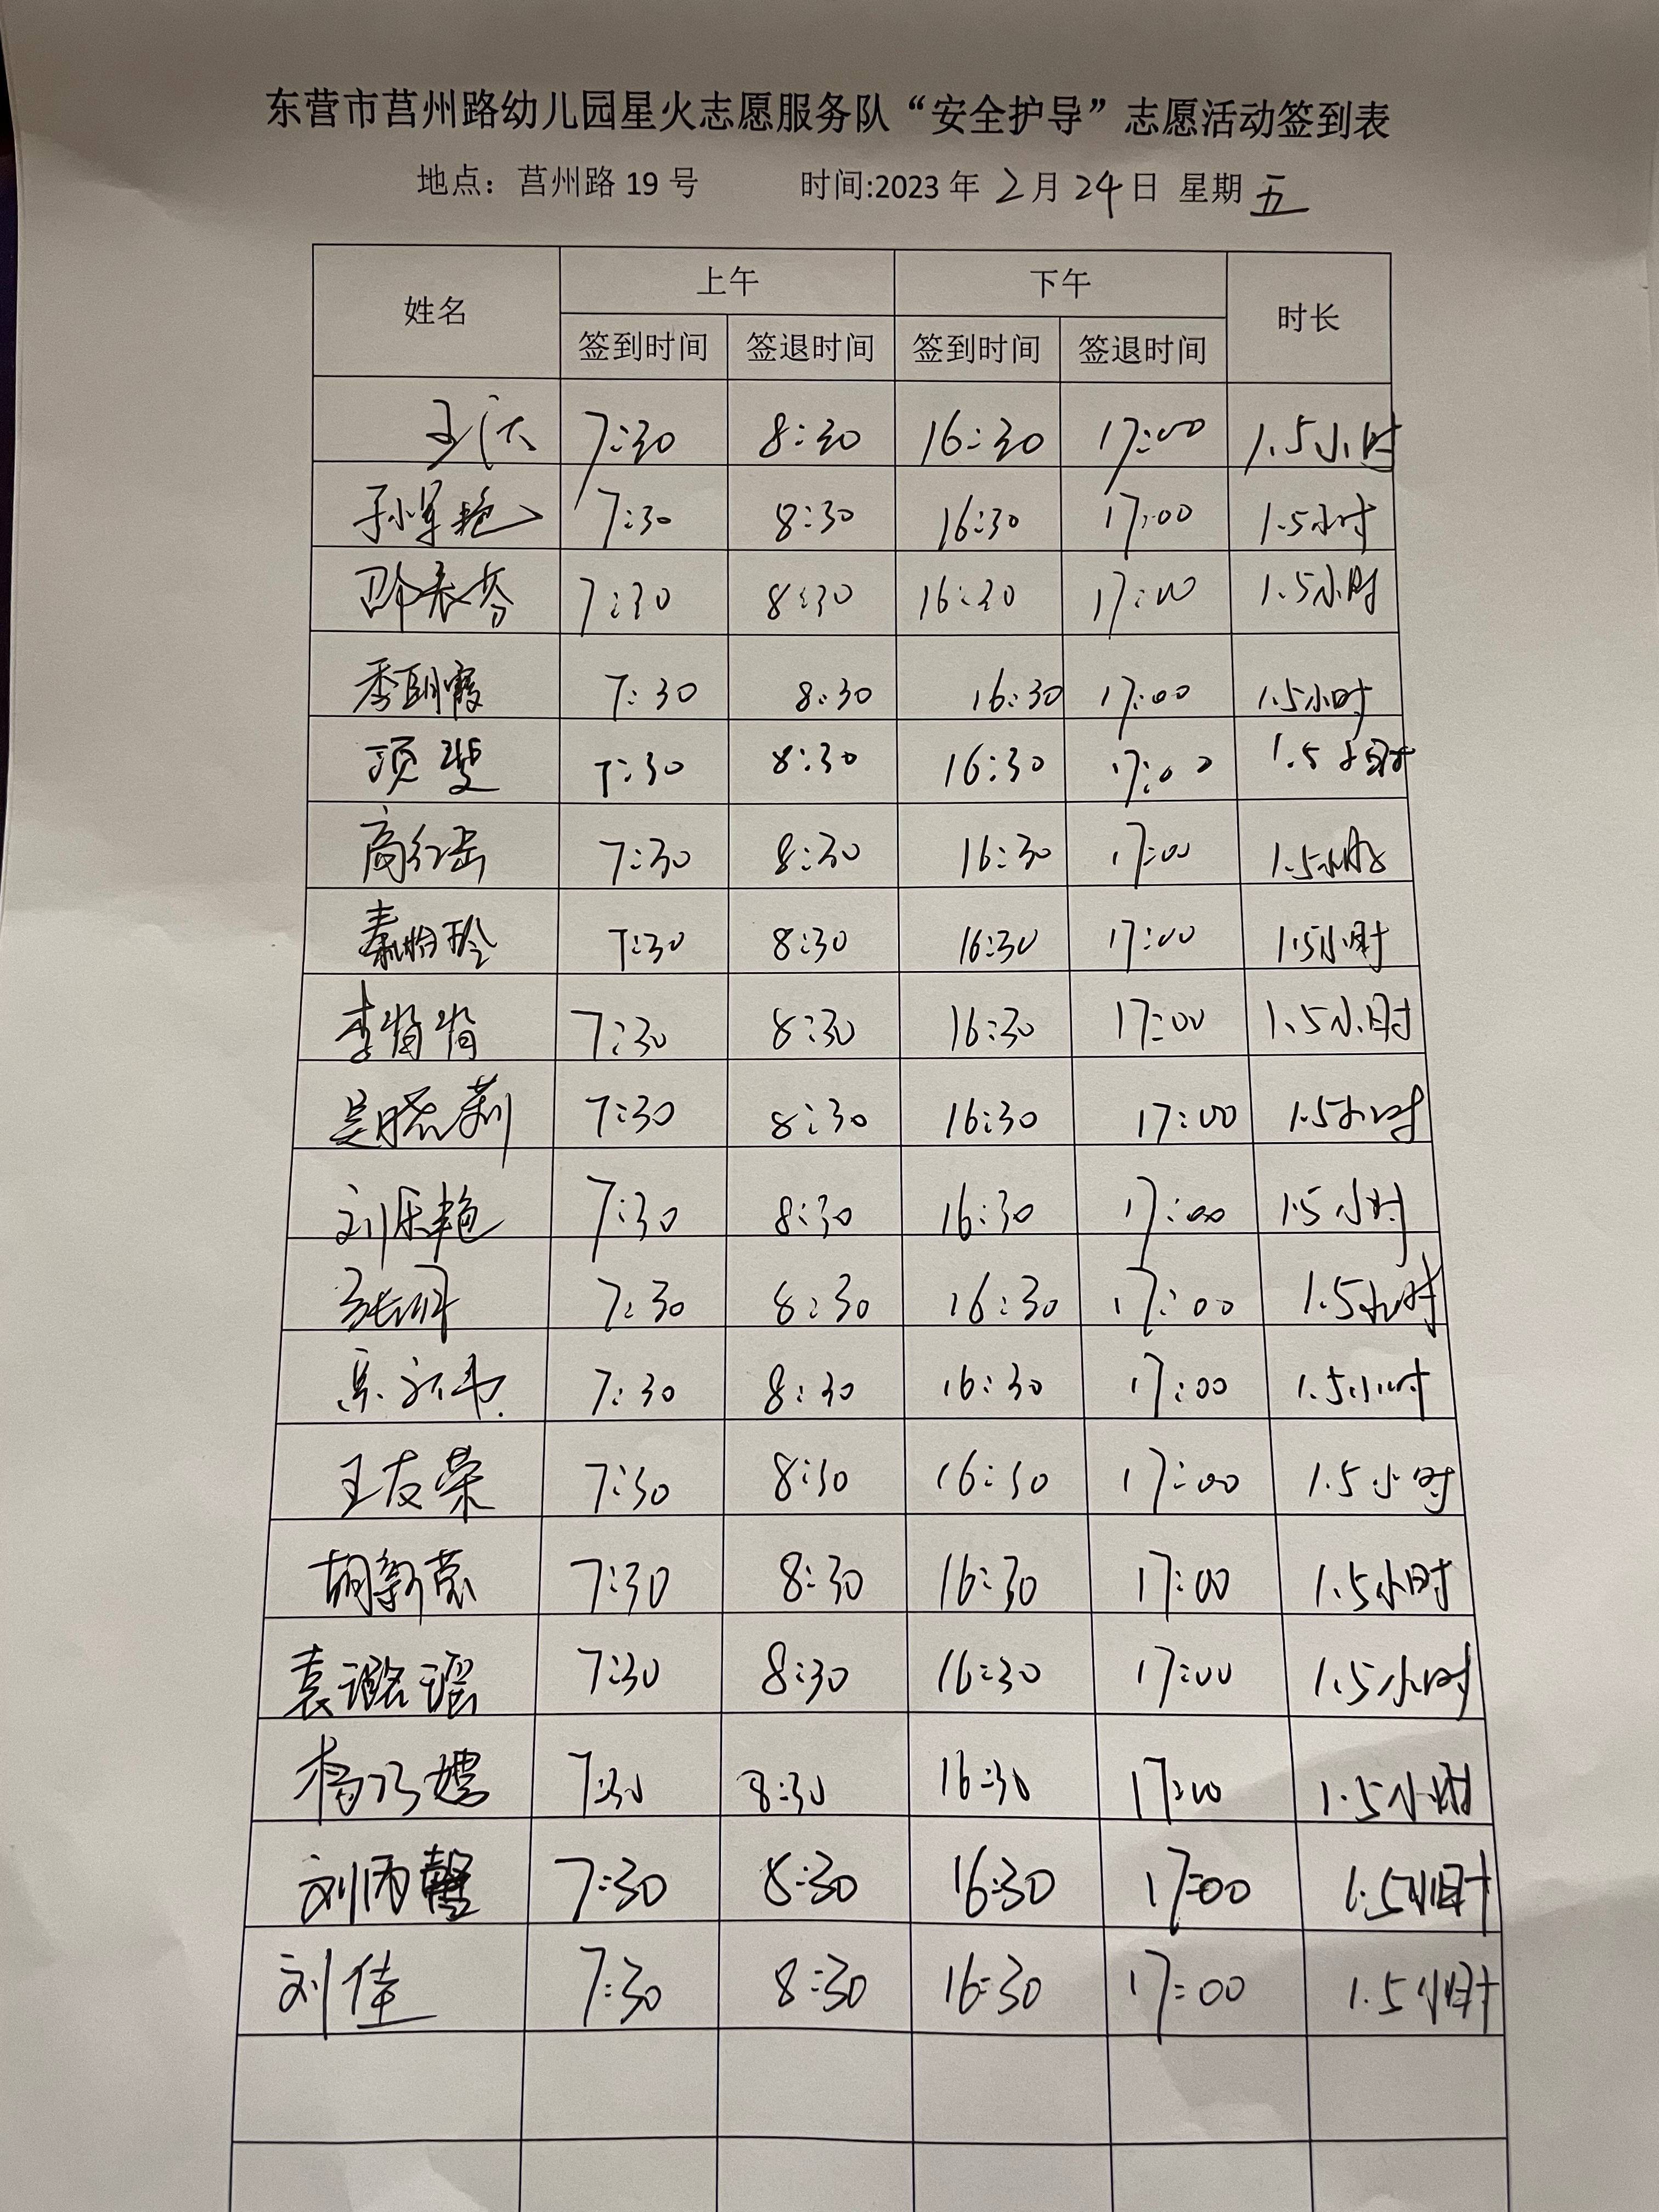 东营市莒州路幼儿园星火志愿服务队“安全护导”志愿活动签到表
地点：莒州路 19 号 时间:2023 年 2 月 24 日 星期 五
姓名 上午 下午 时长
签到时间 签退时间 签到时间 签退时间
7:30 8:30 16:30 17:00 1.5小时
孙军艳 7:30 8:30 16:30 17:00 1.5小时
7:30 8:30 16:30 17:00 1.5小时
季朝霞 7:30 8:30 16:30 17:00 1.5小时
项斐 7:30 8:30 16:30 17:00 1.5小时
商红岳 7:30 8:30 16:30 17:00 1.5小时
秦怡玲 7:30 8:30 16:30 17:00 1.5小时
李肖肖 7:30 8:30 16:30 17:00 1.5小时
吴晓莉 7:30 8:30 16:30 17:00 1.5小时
刘乐艳 7:30 8:30 16:30 17:00 1.5小时
7:30 8:30 16:30 17:00 1.5小时
7:30 8:30 16:30 17:00 1.5小时
王友荣 7:30 8:30 16:30 17:00 1.5小时
胡新 7:30 8:30 16:30 17:00 1.5小时
袁璐瑶 7:30 8:30 16:30 17:00 1.5小时
杨乃嫘 7:30 8:30 16:30 17:00 1.5小时
刘丙馨 7:30 8:30 16:30 17:00 1.5小时
刘佳 7:30 8:30 16:30 17:00 1.5小时